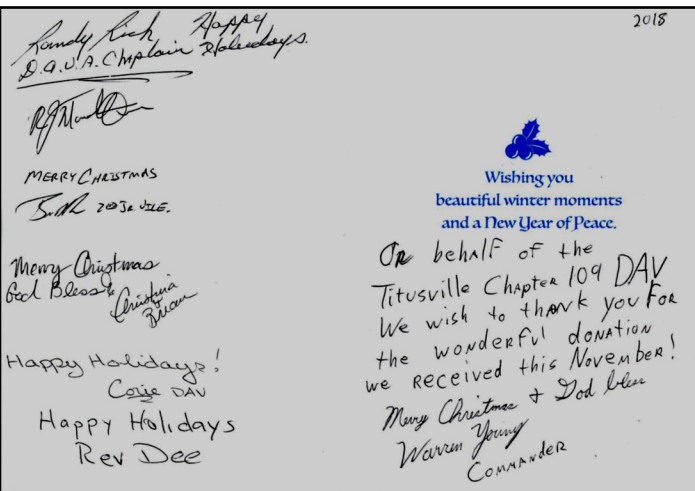 Randy Rich Happy
D.A.V.A. Chaplain Holidays.
MERRY CHRISTMAS
Merry Christmas
God Bless
Christina
Brian
Happy Holidays!
Corie DAV
Happy Holidays
Rev Dee
2018
Wishing you
beautiful winter moments
and a New Year of Peace.
On behalf of the
Titusville Chapter 109 DAV
We wish to thank you for
the wonderful donation
we received this November!
Merry Christmas + God bless
Warren Young
Commander